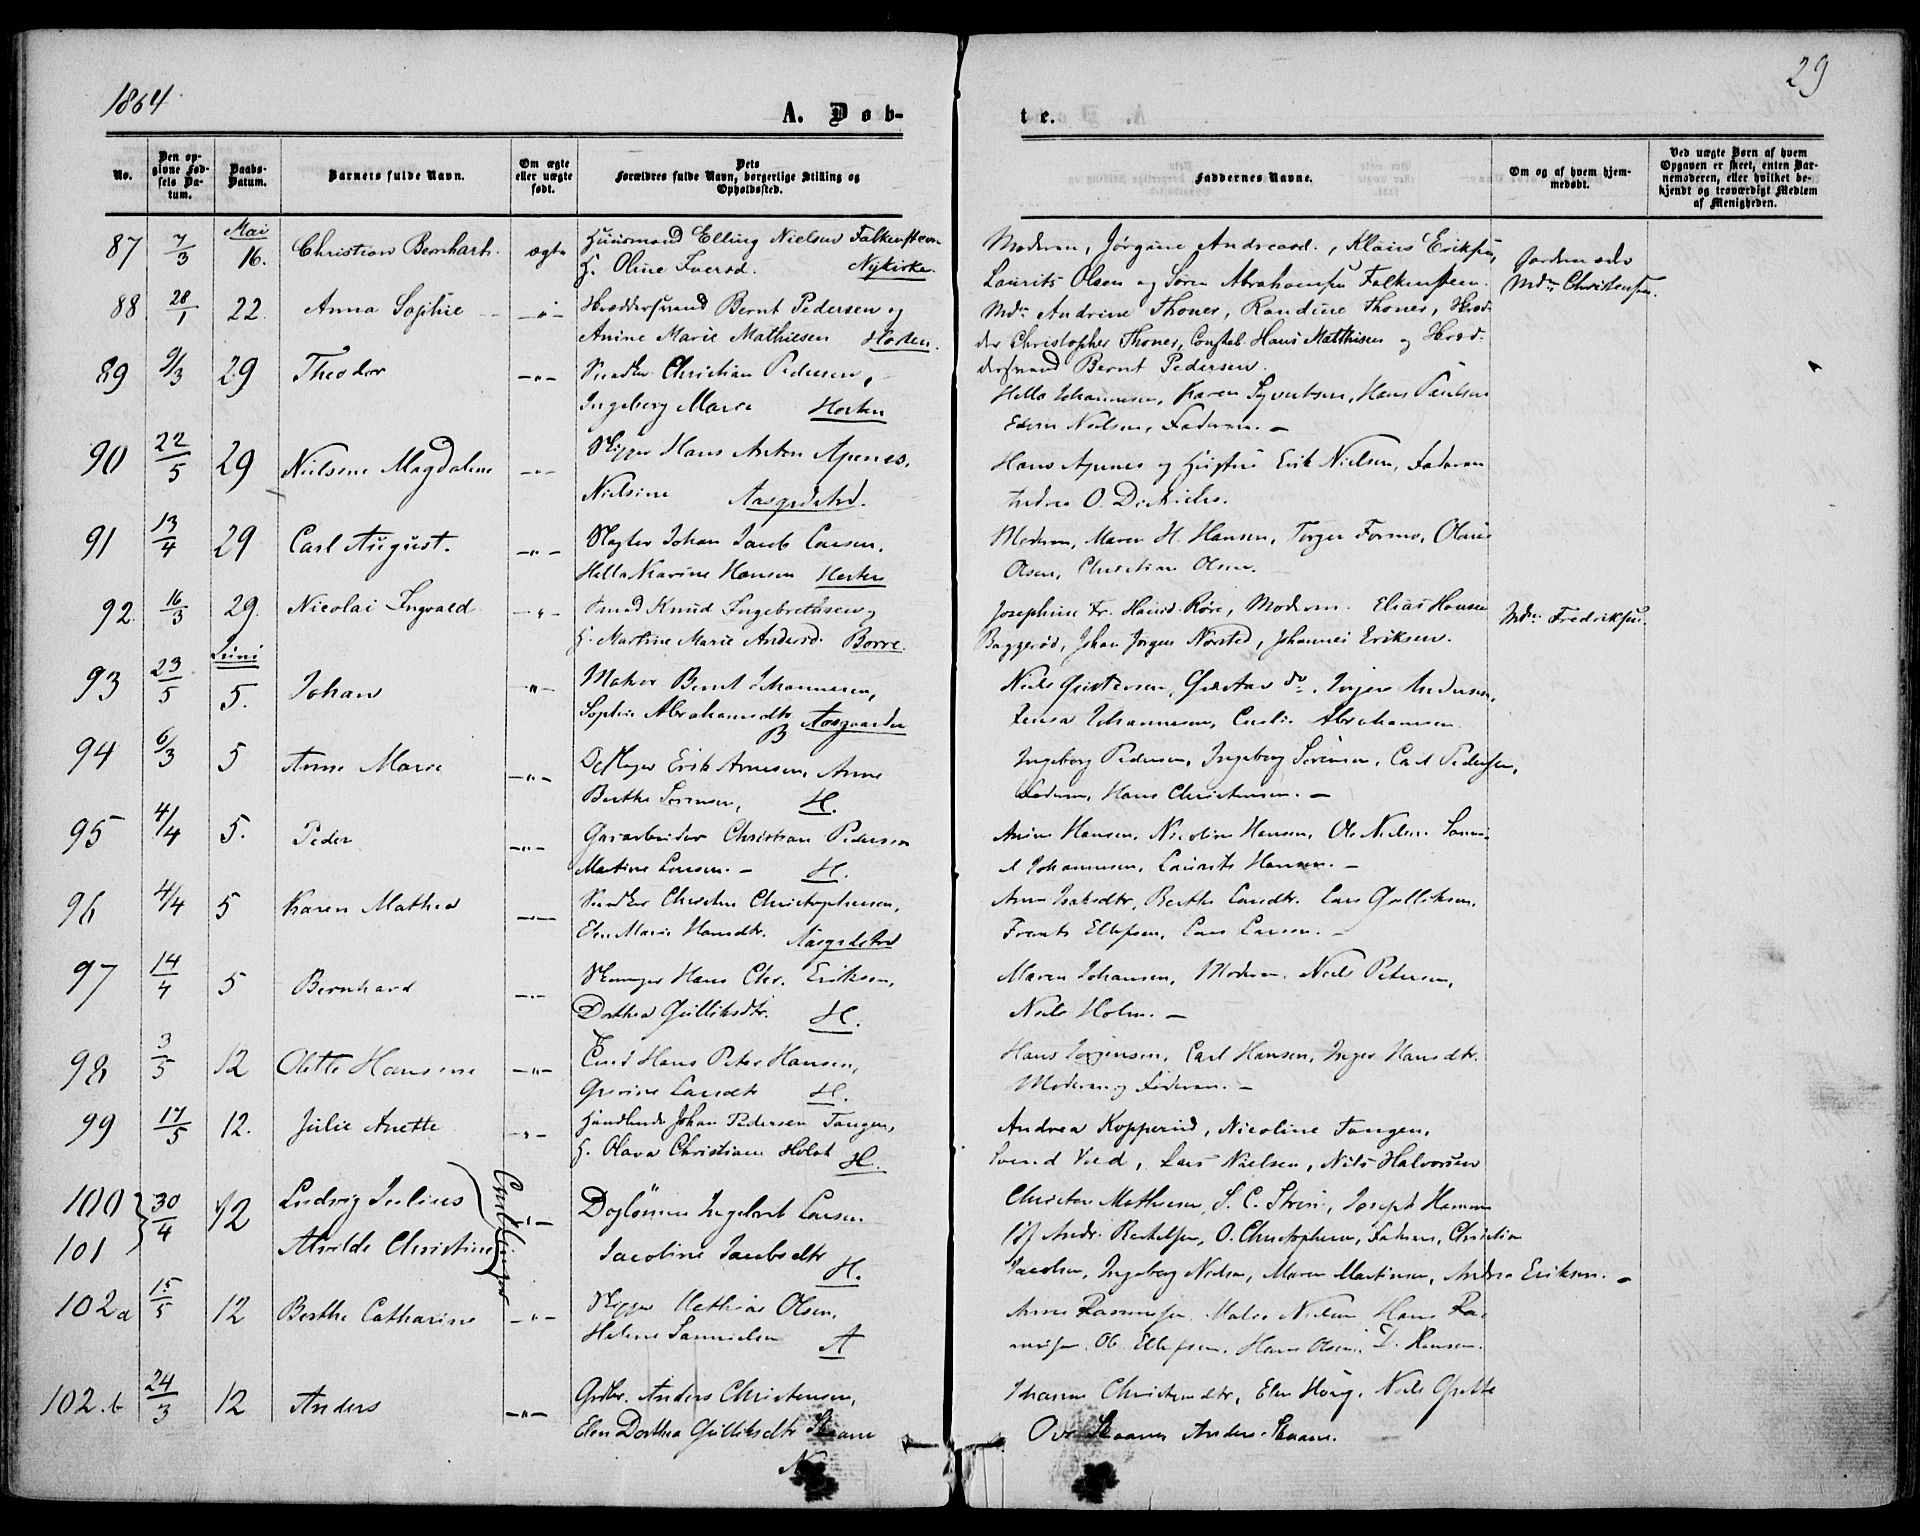 1864
29
A. Döb-
te.
No.
Den op-
givne Fød-
sels Da-
tum.
Daabs-
Datum.
Barnets fulde Navn.
Om ægte
eller uægte
født.
Dets
Forældres fulde Navn, borgerlige Stilling og
Opholdssted.
Faddernes Navne.
Om og af hvem hjem-
medøbt.
Ved uægte Børn af hvem
Opgaven er skeet, enten Bar-
nemoderen, eller hvilket be-
kjendt og troværdigt Medlem
af Menigheden.
87 7/3 Mai 16. Christian Bernhart. ægte Huusmand Elling Nielsen Falkensteen
H. Oline Iversd. Nykirke.
Moderen, Jørgine Andreasd., Klaus Eriksen,
Laurits Olsen og Søren Abrahamsen Falkensteen.
Jordemoder
Md: Christensen.
88 28/1 22. Anna Sophie -"- Skræddersvend Bernt Pedersen og
Anine Marie Mathiesen Horten.
Md: Andrine Thones, Randine Thones, Skræd-
der Christopher Thones, Constab. Hans Matthisen og Skræd-
dersvend Bernt Pedersen.
89 9/3 29 Theodor -"- Snedker Christian Pedersen,
Ingeborg Marie Horten
Hella Johannesen, Karen Syvertsen, Hans Paulsen
Edvin Nielsen, Faderen. -
90 22/5 29 Nielsine Magdalene -"- Skipper Hans Anton Apenes,
Nielsine Aasgrdstrd.
Hans Apenes og Hustru Erik Nielsen, Faderen
Andrea O. Didrichs.
91 13/4 29 Carl August. -"- Slagter Johan Jacob Larsen,
Hella Karine Hansen Horten
Moderen, Maren H. Hansen, Torger Formo, Olaus
Olsen, Christian Olsen.
92. 16/3 29. Nicolai Ingvald -"- Smed Knud Ingebrethsen og
H. Martine Marie Andersd. Borre.
Josephine Fr. Hansd. Røre, Moderen. Elias Hansen
Baggerød, Johan Jørgen Nørsted, Johannes Eriksen.
Md: Fredriksen.
93 23/5 Juni 5. Johan -"- Matros Bernt Johannesen,
Sophie Abrahamsdtr Aasgaarden
B
Niels Gustavsen, Gustav do., Inger Andersen,
Johannesen, Abrahamsen
94 6/3 5 Anne Marie -"- Erik Arnesen, Anne
Berthe Sørensen, H.
Ingeborg Pedersen, Ingeborg Sørensen, Carl Pedersen,
Faderen, Hans Christensen. -
95 4/4 5. Peder -"- Gasarbeider Christian Pedersen
Martine Larsen. - H.
Anine Hansen, Nicoline Hansen, Ole Nielsen Samu-
el Johannesen, Laurits Hansen. -
96 4/4 5 Karen Mathea -"- Snedker Christen Christophersen,
Elen Marie Hansdtr. Aasgrdstrd
Anne Isaksdtr, Berthe Larsdtr. Lars Gulliksen,
Frants Ellefsen, Lars Larsen. -
97 14/4 5 Bernhard -"- Hans Chr. Eriksen,
Dorthea Gulliksdtr. H.
Maren Johansen, Moderen. Niels Petersen,
Niels Holm. -
98 3/5 12 Olette Hansine -"- Hans Peter Hansen,
Gurine Larsdtr H.
Hans Jørgensen, Carl Hansen, Inger Hansdtr.
Moderen og Faderen. -
99 17/5 12. Julie Anette -"- Handlende Johan Pedersen Tangen,
H. Olava Christiane Holst H.
Andrea Kopperud, Nicoline Tangen,
Svend Vied, Lars Nielsen, Nils Halvorsen
100 30/4 12 Ludvig Julius Tvillinger -"- Daglønner Ingebret Larsen
101 Alvilde Christine
Jacobine Jacobsdtr H.
Christen Mathiesen, S. C. Steen, Joseph Hansen
Andr. Bertelsen, O. Christophersen, Faderen, Christian
Jacobsen, Ingeborg Nielsen, Maren Martinsen, Andrea Eriksen. -
102 a 15/5 12 Berthe Catharine -"- Skipper Mathias Olsen,
Helene Samuelsen A
Anne Rasmussen Nielsen Hans Ras-
mussen, Ol. Ellefsen, Hans Olsen, D. Hansen.
102. b 24/3 12 Anders -"- Grdbr. Anders Christensen,
Elen Dorthea Gulliksdtr Skaane
N
Johanne Christensdtr, Elen Houg, Niels Grette
Ove Skaane Anders Skaane.